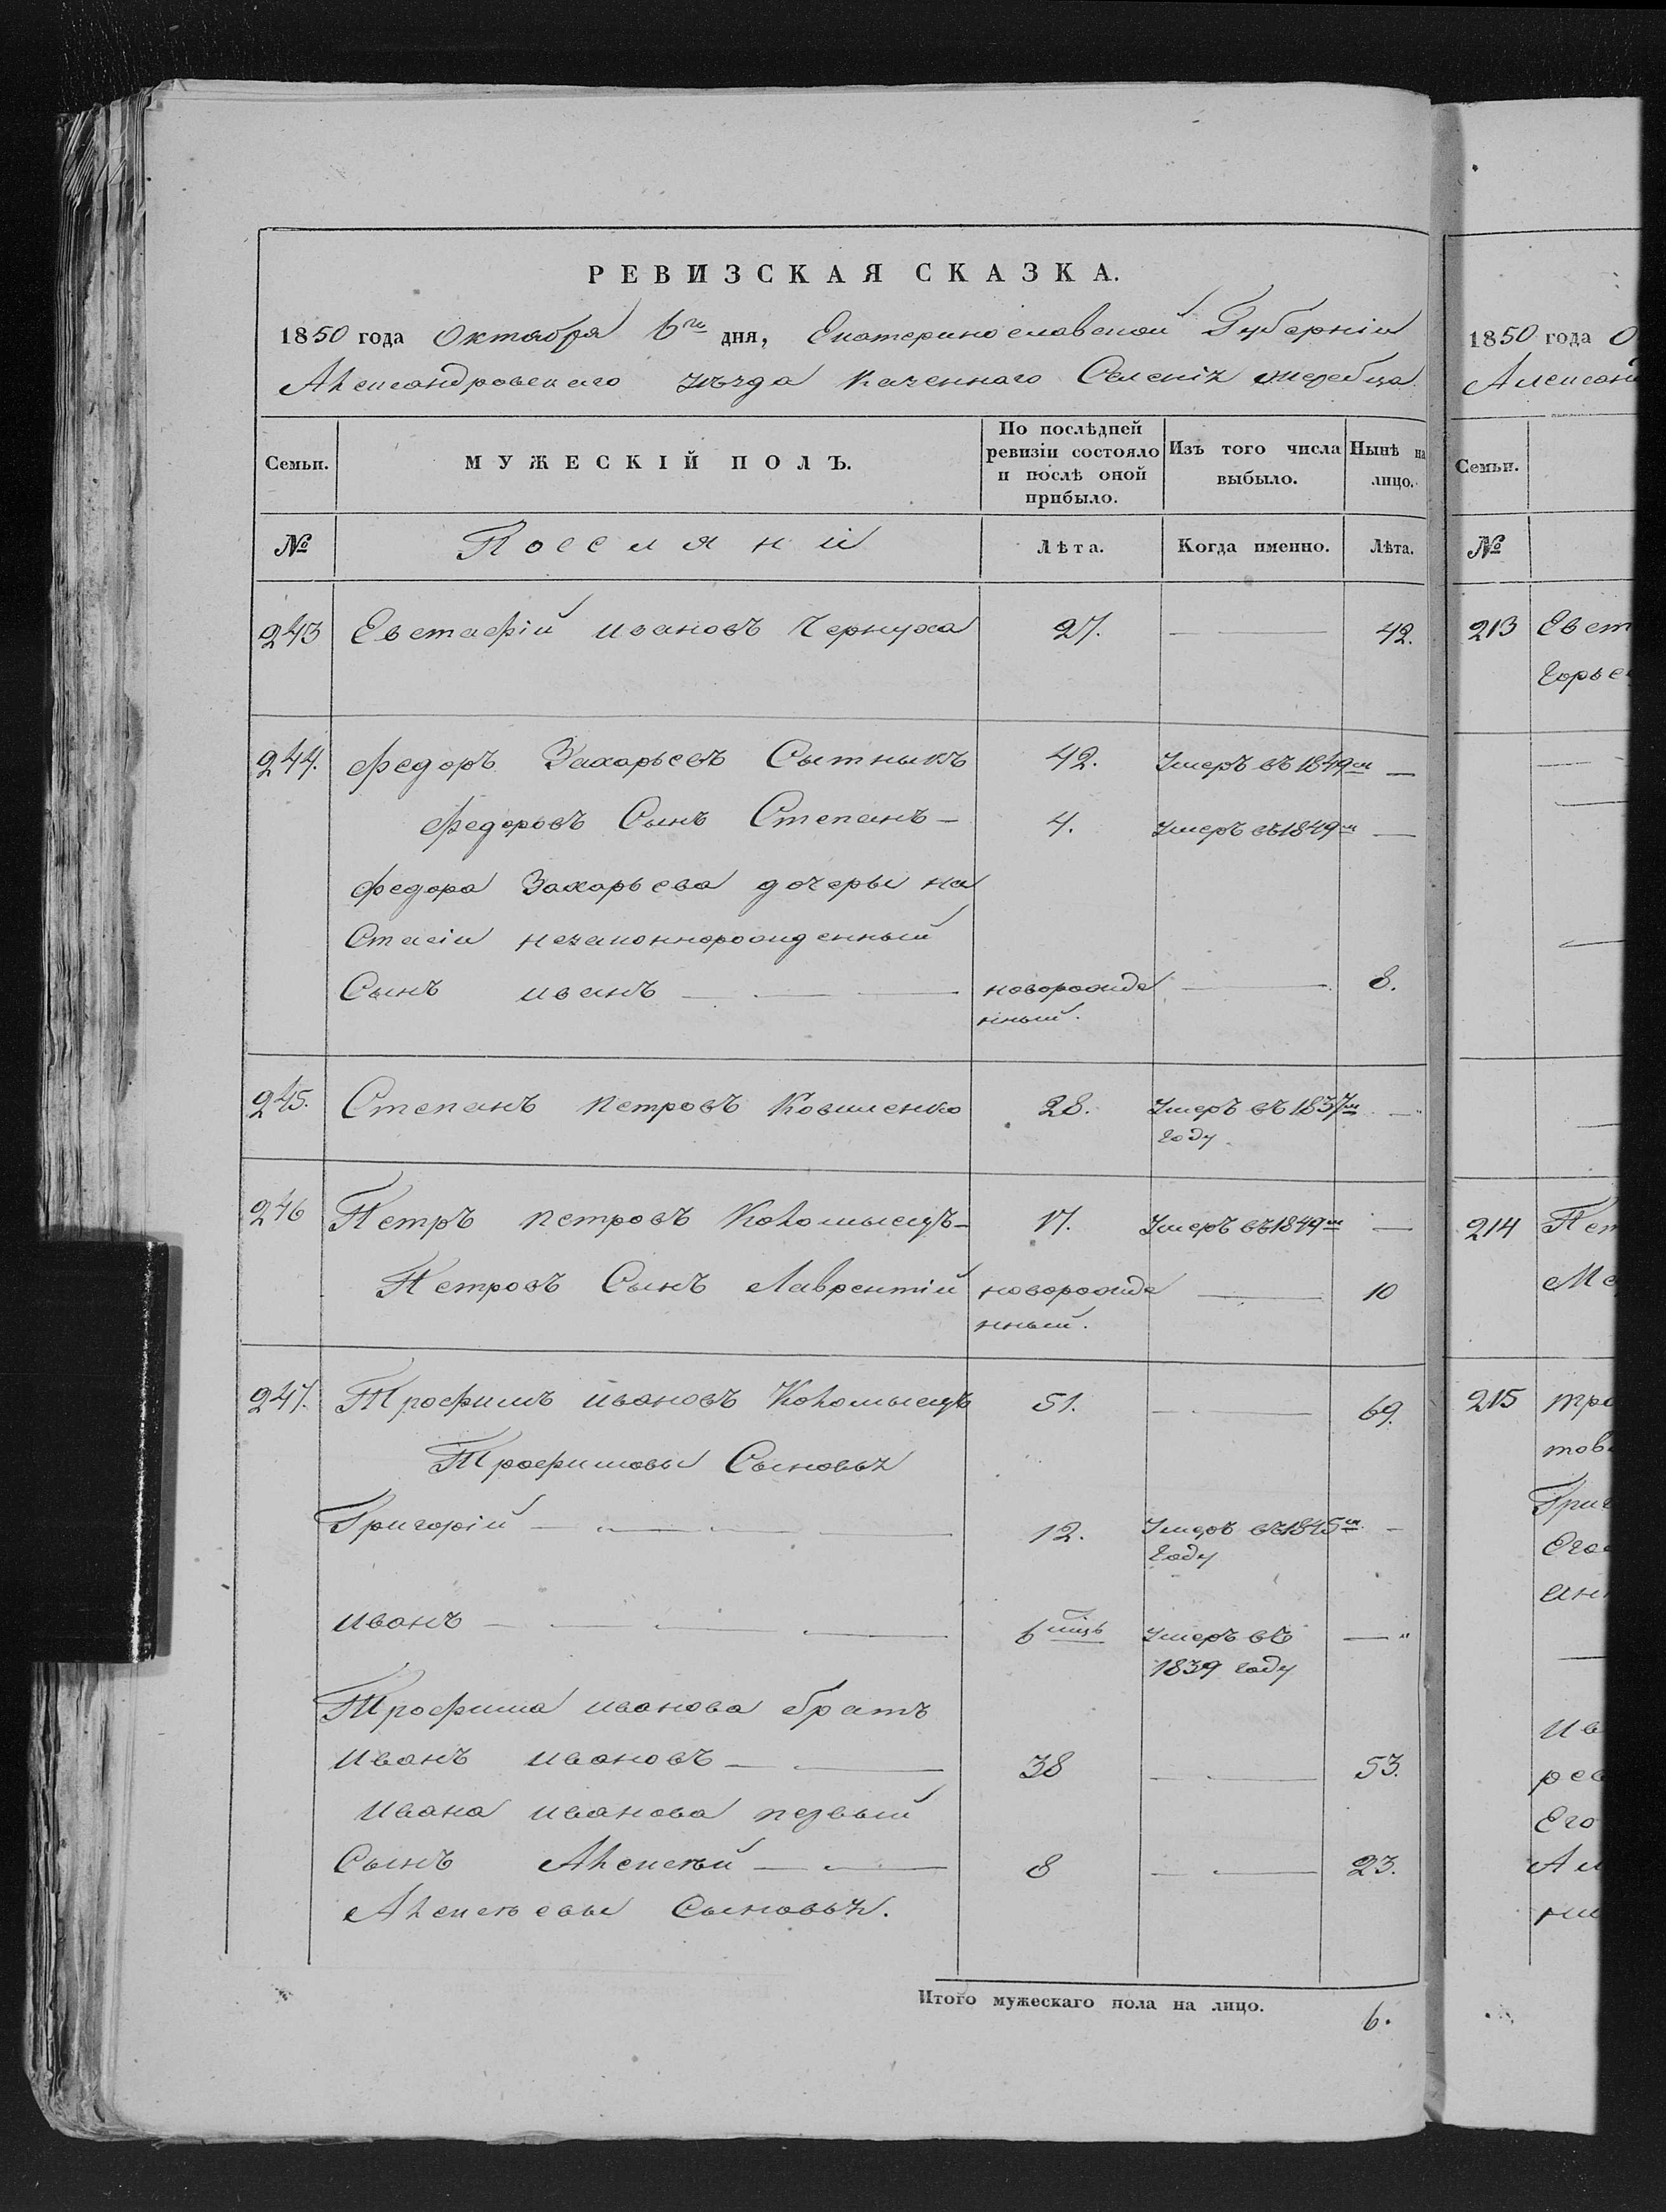 РЕВИЗСКАЯ СКАЗКА.
1850 года Октября 6го дня, Екатеринославской Губерніи
Александровскаго уѣзда Казеннаго Селенія Жеребца
Семьи. МУЖЕСКІЙ ПОЛЪ. По послѣдней ревизіи состояло и послѣ оной прибыло. Изъ того числа выбыло. Нынѣ на лицо.
№ Поселяни Лѣта. Когда именно. Лѣта.
243 Евстафій Ивановъ Чернуха 27. — 42.
244. Федоръ Захарьевъ Сытныкъ 42. Умеръ въ 1849м —
Федоровъ Сынъ Степанъ — 4. Умеръ въ 1849м —
Федора Захарьева дочеры на
Стасіи незаконнорожденный
Сынъ Иванъ — новорожде — 8.
нный.
245. Степанъ Петровъ 28. Умеръ въ 1837м —
Году
246 Петръ Петровъ Коломыецъ — 17. Умеръ въ 1849м —
Петровъ Сынъ Лаврентій новорожде — 10
нный.
247. Трофимъ Ивановъ Коломыецъ 51. — 69.
Трофимовы Сыновья
Григорій — 12. Умеръ въ 1845м —
Году
Иванъ — 6 мцъ Умеръ въ —
1839 Году
Трофима Иванова братъ
Иванъ Ивановъ — 38 — 53.
Ивана Иванова первый
Сынъ Алексѣй — 8 — 23.
Алексѣевы Сыновья.
Итого мужескаго пола на лицо. 6.
1850 года О
Алексан
Семьи.
№
213 Евст
214 Пет
215 Тро
Григ
Ив
Его